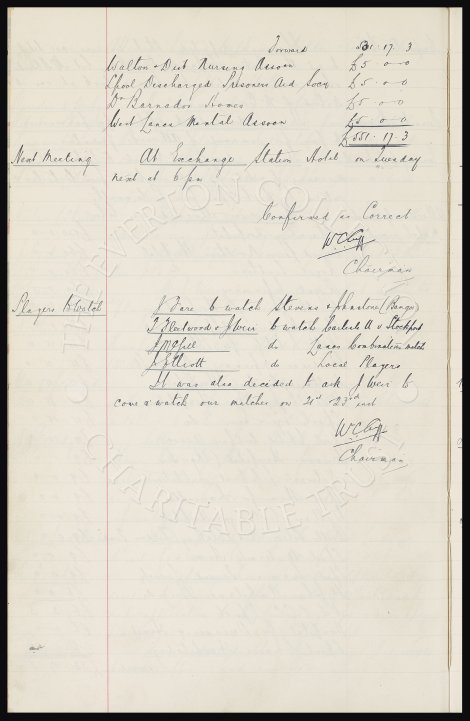 Forward 531 . 17 . 3
Walton & Dist Nursing Assocn £5 . 0 . 0
L'pool Discharged Prisoners Aid Socy £5 . 0 . 0
Dr Barnados Homes £5 . 0 . 0
West Lancs Mental Assocn £5 . 0 . 0
£551 . 17 . 3
Next Meeting At Exchange Station Hotel on Tuesday
next at 6 pm
Confirmed as Correct
W.C. Cuff
Chairman
Players to Watch N Dare to watch Stevens & Johnstone (Bangor)
T Fleetwood & J Weir to watch Carlisle U v Stockport
do Lancs Combination match
J Elliott do Local Players
It was also decided to ask J Weir to
come & watch our matches on 21st & 23rd inst
W.C. Cuff
Chairman
THE EVERTON CO
CHARITABLE TRUST